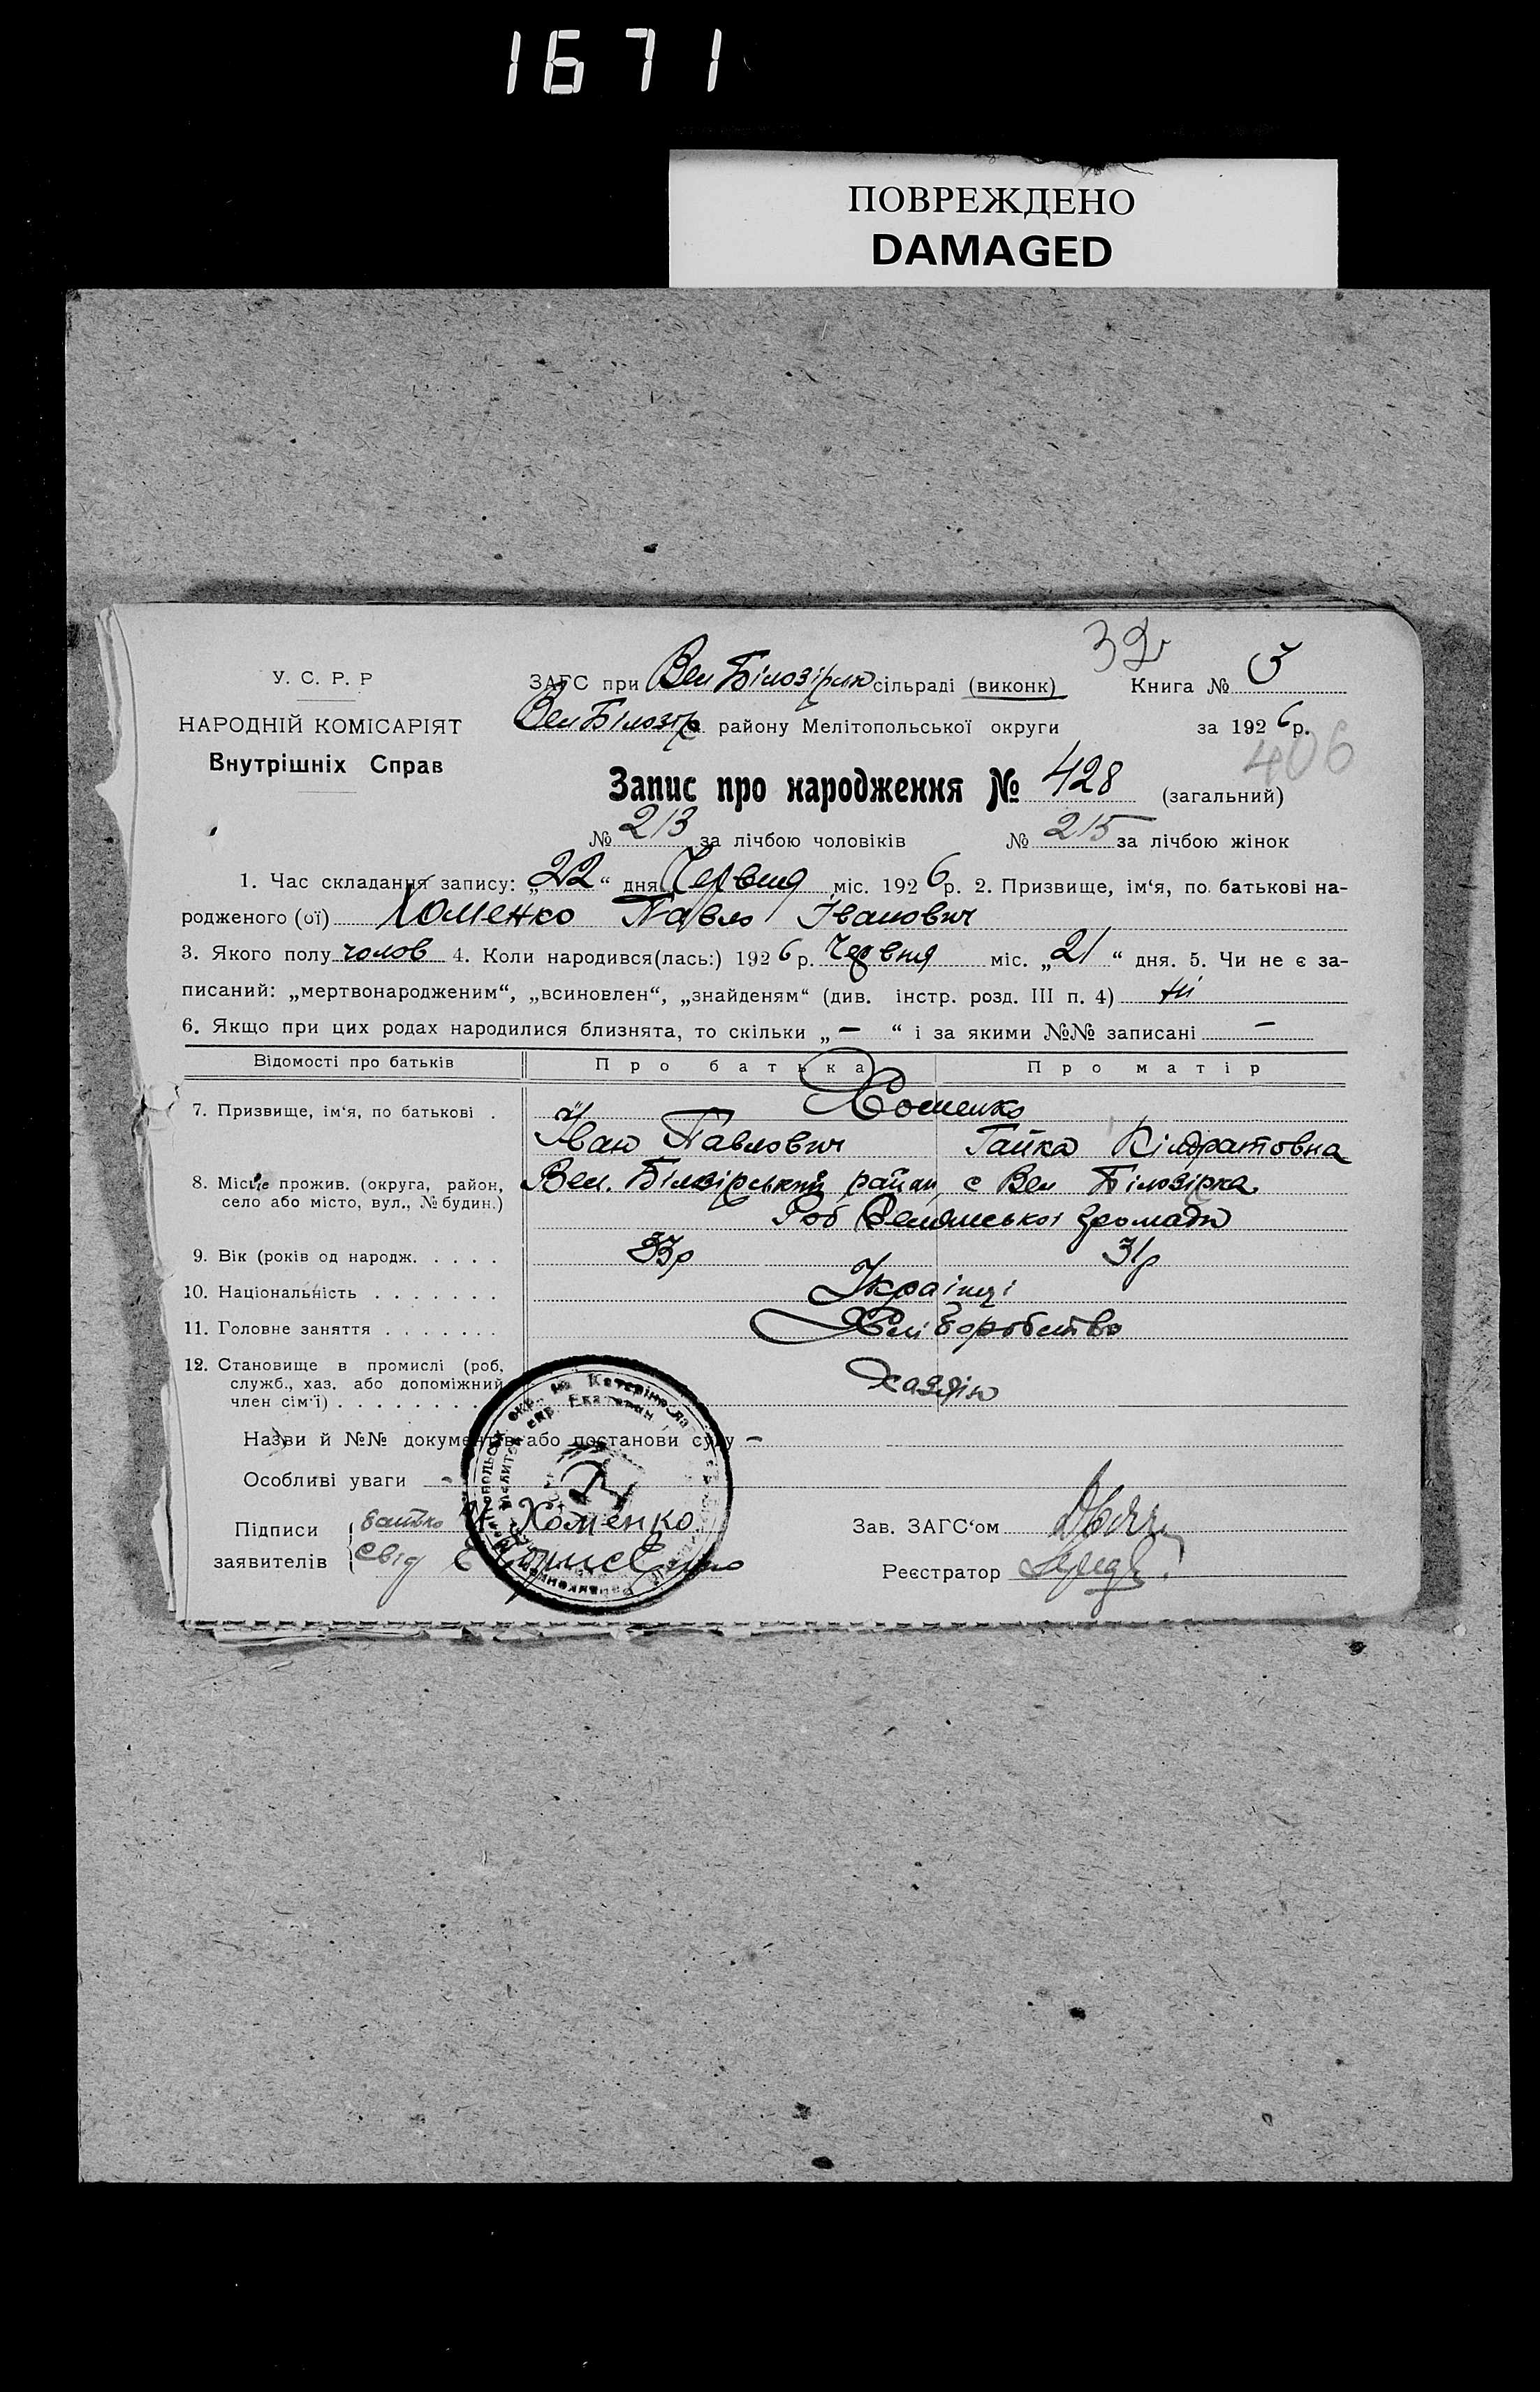 1671
ПОВРЕЖДЕНО
DAMAGED
32
У. С. Р. Р
ЗАГС при Вел Білозірк сільраді (виконк) Книга № 5
НАРОДНІЙ КОМІСАРІЯТ
Вел Білозір. району Мелітопольської округи за 1926р.
Внутрішніх Справ
406
Запис про народження № 428 (загальний)
№ 213 за лічбою чоловіків № 215 за лічбою жінок
1. Час складання запису: „22“ дня Червня міс. 1926р. 2. Призвище, ім‘я, по батькові на-
родженого (ої) Хоменко Павло Іванович
3. Якого полу чолов 4. Коли народився(лась:) 1926р. Червня міс. „21“ дня. 5. Чи не є за-
писаний: „мертвонародженим“, „всиновлен“, „знайденям“ (див. інстр. розд. III п. 4) ні
6. Якщо при цих родах народилися близнята, то скільки „—“ і за якими №№ записані —
Відомості про батьків Про батька Про матір
7. Призвище, ім‘я, по батькові . Хоменко
Іван Павлович Гапка Кіндратовна
8. Місце прожив. (округа, район, село або місто, вул., № будин.) Вел. Білозірський район с Вел Білозірка
громади
9. Вік (років од народж. . . . . 33р 31р
10. Національність . . . . . . . Українці
11. Головне заняття . . . . . . . Хліборобство
12. Становище в промислі (роб, служб., хаз. або допоміжний член сім‘ї) . . . . . . . . хазяін
Назви й №№ документів або постанови суду —
Особливі уваги -
Підписи заявителів батько И Хоменко
свід
Зав. ЗАГС‘ом
Реєстратор